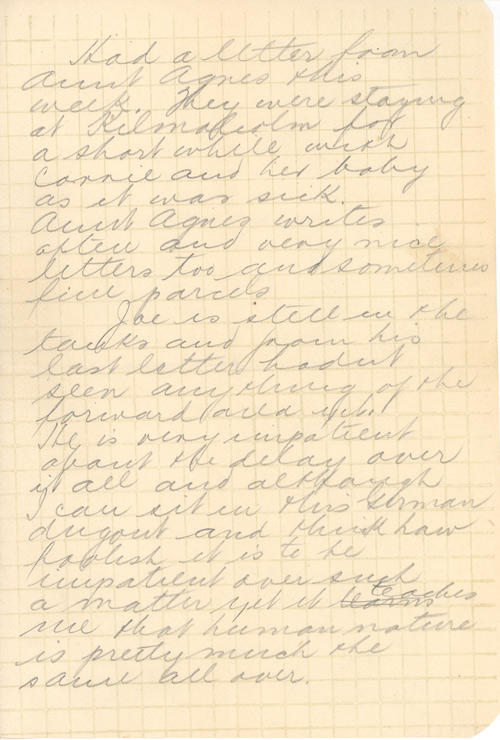 Had a letter from
Aunt Agnes this
week. They were staying
at Kilmalcolm for
a short while with
Connie and her baby
as it was sick.
Aunt Agnes writes
often and very nice
letters too and sometimes
fine parcels
Joe is still in the
tanks and from his
last letter hadnt
seen anything of the
forward area yet.
He is very impatient
about the delay over
it all and although
I can sit in this German
dugout and think how
foolish it is to be
impatient over such
a matter yet it learns teaches
me that human nature
is pretty much the
same all over.